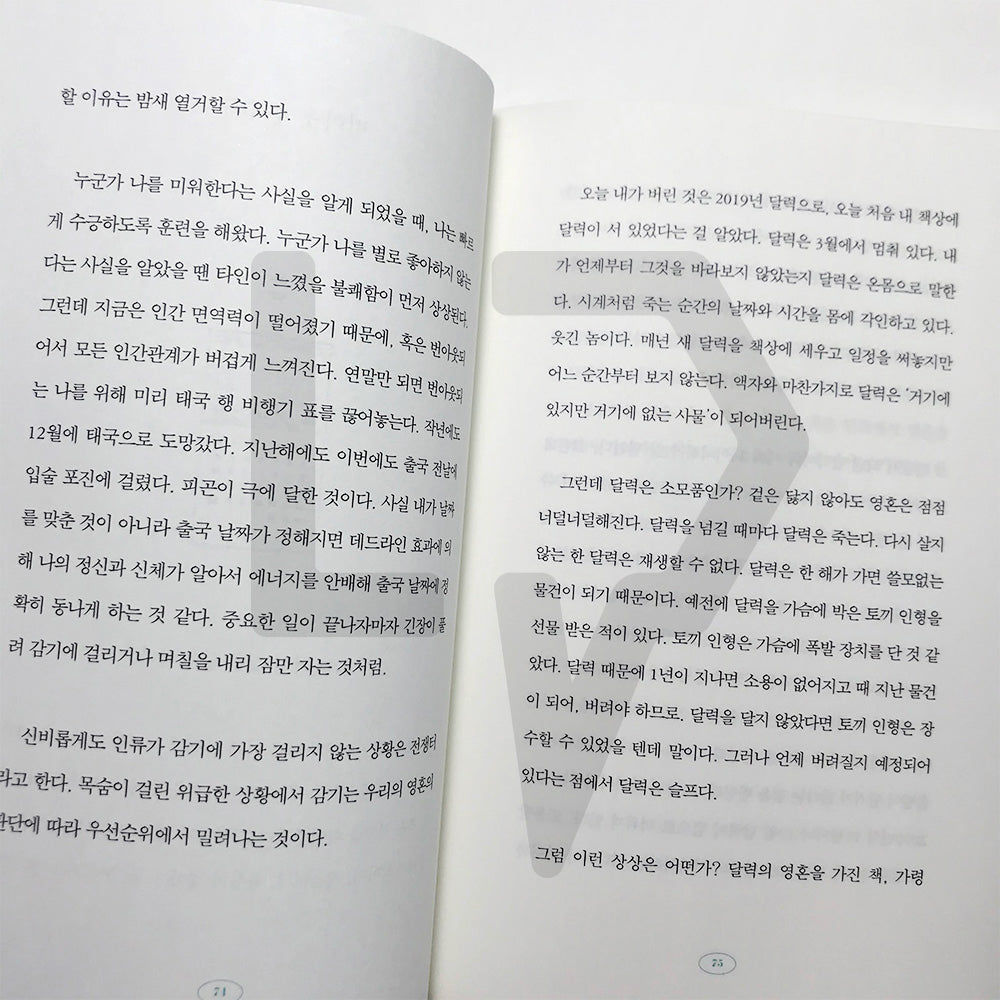 할 이유는 밤새 열거할 수 있다.
누군가 나를 미워한다는 사실을 알게 되었을 때, 나는 빠르
게 수긍하도록 훈련을 해왔다. 누군가 나를 별로 좋아하지 않는
다는 사실을 알았을 땐 타인이 느꼈을 불쾌함이 먼저 상상된다.
그런데 지금은 인간 면역력이 떨어졌기 때문에, 혹은 번아웃되
어서 모든 인간관계가 버겁게 느껴진다. 연말만 되면 번아웃되
는 나를 위해 미리 태국 행 비행기 표를 끊어놓는다. 작년에도
12월에 태국으로 도망갔다. 지난해에도 이번에도 출국 전날에
입술 포진에 걸렸다. 피곤이 극에 달한 것이다. 사실 내가 날짜
를 맞춘 것이 아니라 출국 날짜가 정해지면 데드라인 효과에 의
해 나의 정신과 신체가 알아서 에너지를 안배해 출국 날짜에 정
확히 동나게 하는 것 같다. 중요한 일이 끝나자마자 긴장이 풀
려 감기에 걸리거나 며칠을 내리 잠만 자는 것처럼.
신비롭게도 인류가 감기에 가장 걸리지 않는 상황은 전쟁터
라고 한다. 목숨이 걸린 위급한 상황에서 감기는 우리의 영혼의
판단에 따라 우선순위에서 밀려나는 것이다.
74
오늘 내가 버린 것은 2019년 달력으로, 오늘 처음 내 책상에
달력이 서 있었다는 걸 알았다. 달력은 3월에서 멈춰 있다. 내
가 언제부터 그것을 바라보지 않았는지 달력은 온몸으로 말한
다. 시계처럼 죽는 순간의 날짜와 시간을 몸에 각인하고 있다.
웃긴 놈이다. 매년 새 달력을 책상에 세우고 일정을 써놓지만
어느 순간부터 보지 않는다. 액자와 마찬가지로 달력은 ‘거기에
있지만 거기에 없는 사물’이 되어버린다.
그런데 달력은 소모품인가? 겉은 닳지 않아도 영혼은 점점
너덜너덜해진다. 달력을 넘길 때마다 달력은 죽는다. 다시 살지
않는 한 달력은 재생할 수 없다. 달력은 한 해가 가면 쓸모없는
물건이 되기 때문이다. 예전에 달력을 가슴에 박은 토끼 인형을
선물 받은 적이 있다. 토끼 인형은 가슴에 폭발 장치를 단 것 같
았다. 달력 때문에 1년이 지나면 소용이 없어지고 때 지난 물건
이 되어, 버려야 하므로. 달력을 달지 않았다면 토끼 인형은 장
수할 수 있었을 텐데 말이다. 그러나 언제 버려질지 예정되어
있다는 점에서 달력은 슬프다.
그럼 이런 상상은 어떤가? 달력의 영혼을 가진 책, 가령
75